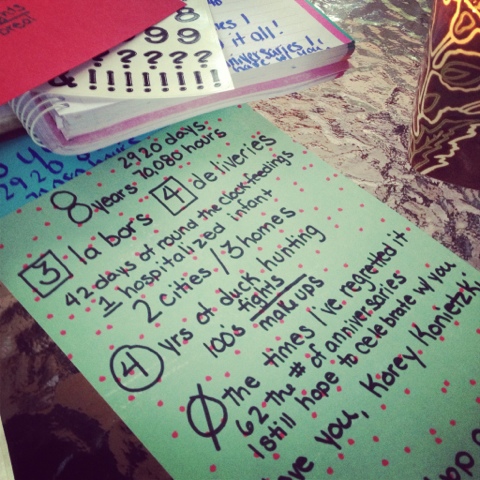 8
99
???????
& !!!!!!!
it all!
2920 days
8 years 70,080 hours
3 labors 4 deliveries
42 days of round the clock feedings
1 hospitalized infant
2 cities / 3 homes
4 yrs of duck hunting
100's fights
make ups
Ø the times I've regretted it
62 the # of anniversaries
I still hope to celebrate w/ you
you, Korey Konietzki